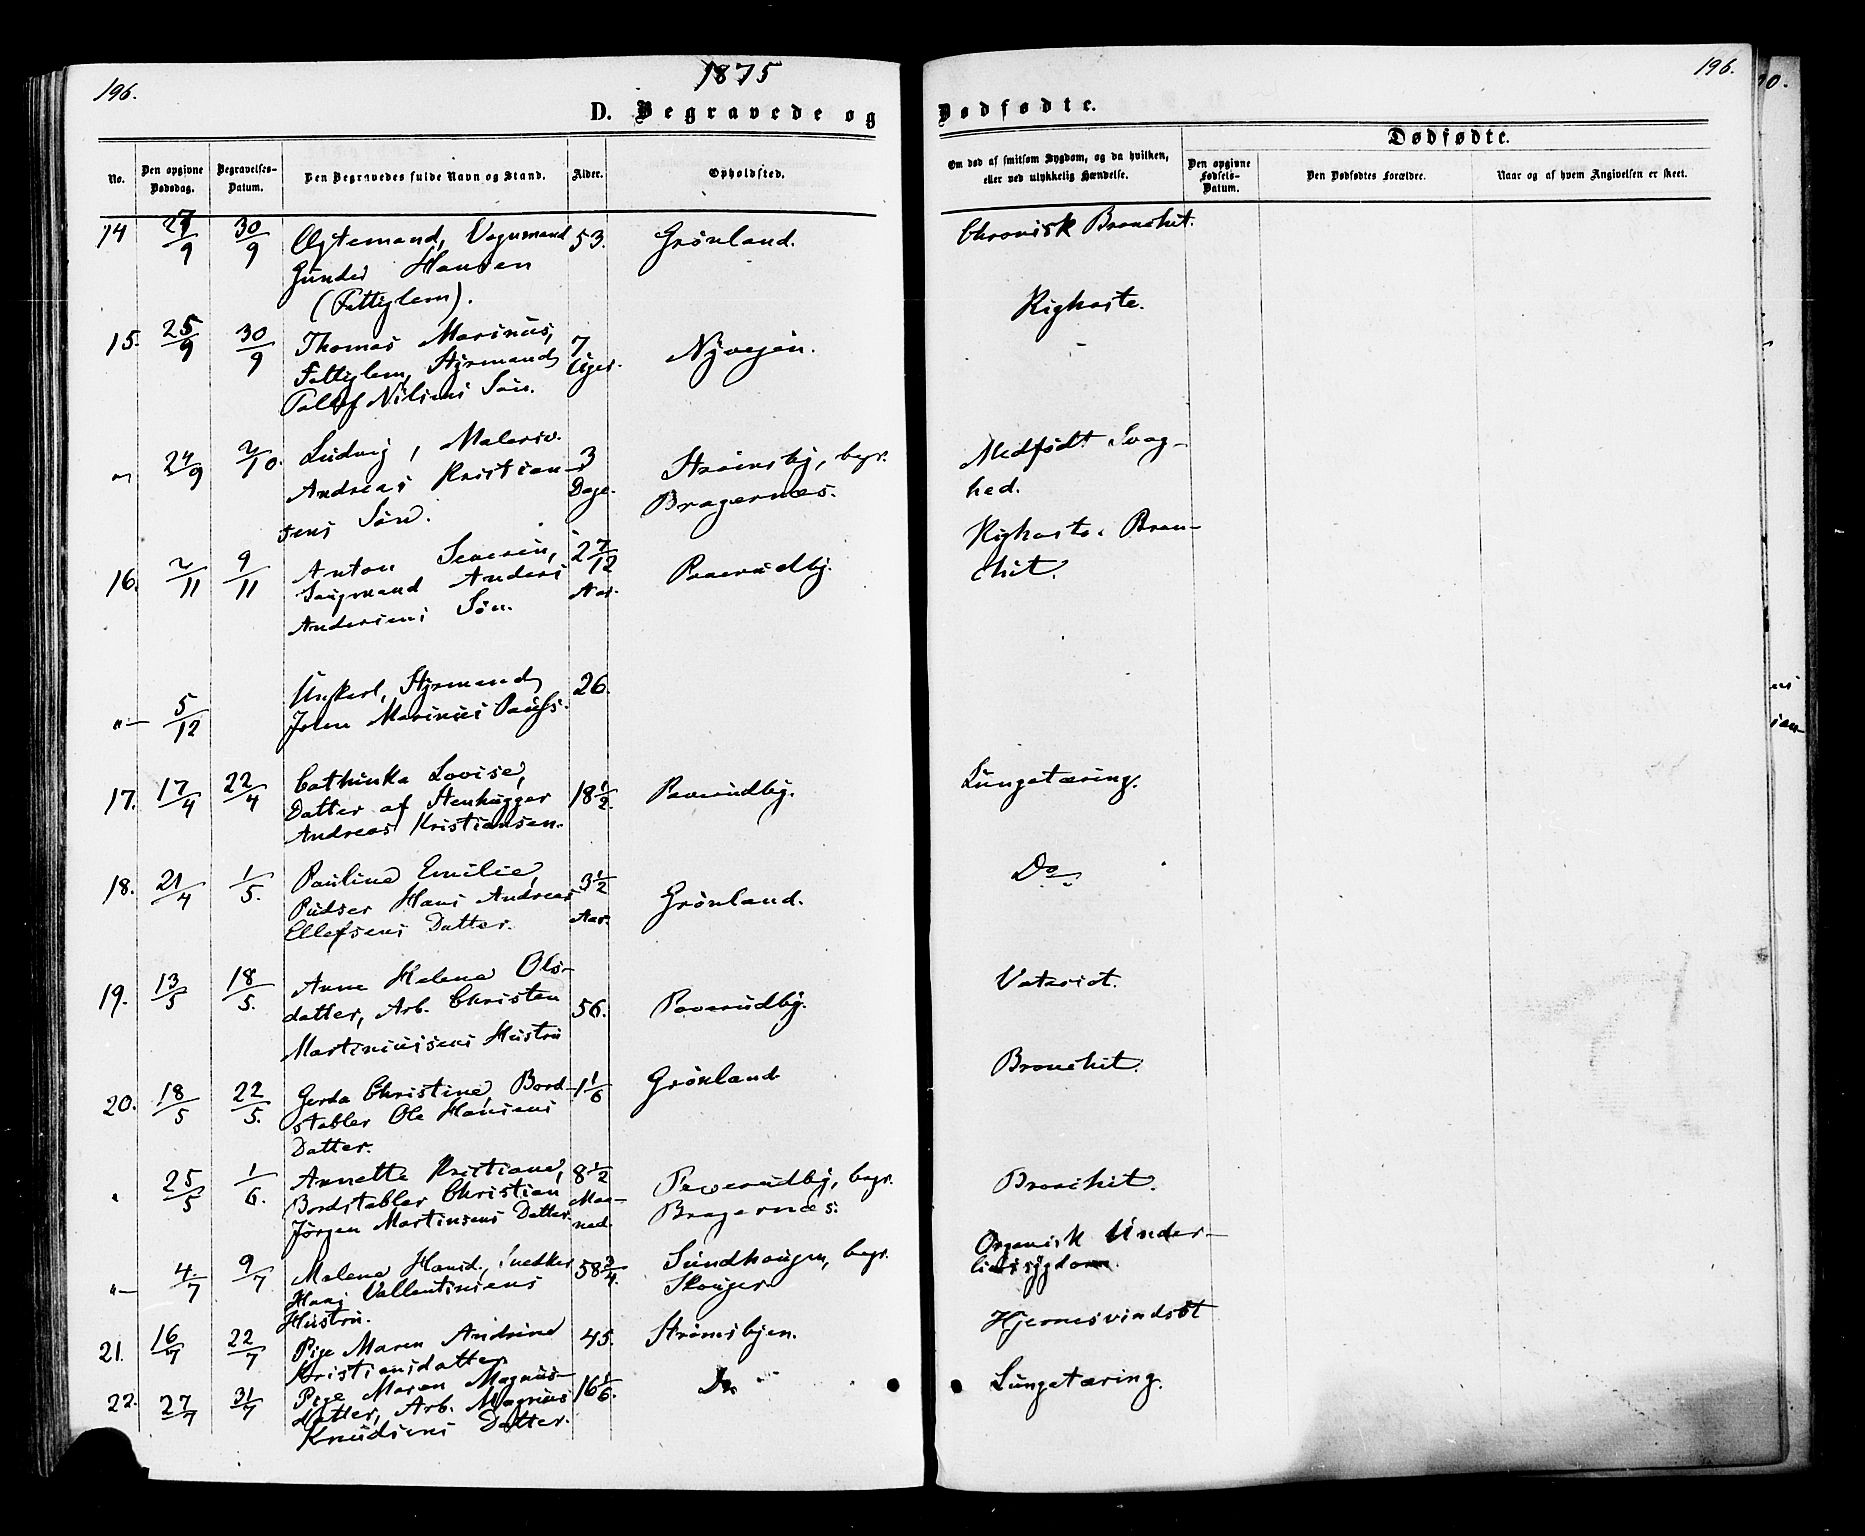 196.
1875
196.
D. Begravede og Dødfødte.
Dødfødte.
No.
Den opgivne Dødsdag.
Begravelses-Datum.
Den Begravedes fulde Navn og Stand.
Alder.
Opholdsted.
Om død af smitsom Sygdom, og da hvilken, eller ved ulykkelig Hændelse.
Den opgivne Fødsels-Datum.
Den Dødfødtes Forældre.
Naar og af hvem Angivelsen er skeet.
14 27/9 30/9 Ægtemand, Vognmand 53. Grønland. Chronisk Bronchit.
Gunder Hansen
(Fattiglem).
15. 25/9 30/9 Thomas Marinus, 7 Uger. Nyvejen. Kighoste.
Fattiglem, Styrmand
Tollef Nilsens Søn.
" 24/9 2/10. Ludvig, Malersv. 3 Dage. Strømsby, begr. Medfødt Svag-
Andreas Kristian- Bragernæs. hed.
sens Søn.
16. 2/11 9/11 Anton Severin, 2 7/12 Aar. Paverudby. Kighoste. Bron-
Saugmand Anders chit.
Andersens Søn.
"- 5/12 Ungkarl, Styrmand 26.
John Marinius Pauss.
17. 17/4 22/4 Cathinka Lovise, 18 1/2. Paverudby. Lungetæring.
Datter af Stenhugger
Andreas Kristiansen.
18. 21/4 1/5. Pauline Emilie, 3 1/2 Aar. Grønland. Do
Pudser Hans Andreas
Ellefsens Datter.
19. 13/5 18/5. Anne Helene Ols- 56. Paverudby.
datter, Arb. Christen
Martiniusens Hustru
20. 18/5 22/5. Gerda Christine, Bord- 1 1/6 Grønland Bronchit.
stabler Ole Hansens
Datter.
" 25/5 1/6. Annette Kristiane, 8 1/2 Maa- Paverudby, begr. Bronchit.
Bordstabler Christian ned. Bragernæs.
Jørgen Martinsens Datter.
"- 4/7 9/7 Malene Hansd., Snedker 58 3/4. Sundhaugen, begr. Organisk Under-
Hans Vallentinsens Skouger livssygdom.
Hustru.
21. 16/7 22/7 Pige Maren Andrine 45. Strømsbyen. Hjernesvindsot
Kristiansdatter
22. 27/7 31/7 Pige Maren Magnus- 16 1/6. Do Lungetæring.
datter, Arb. Magnus
Knudsens Datter.